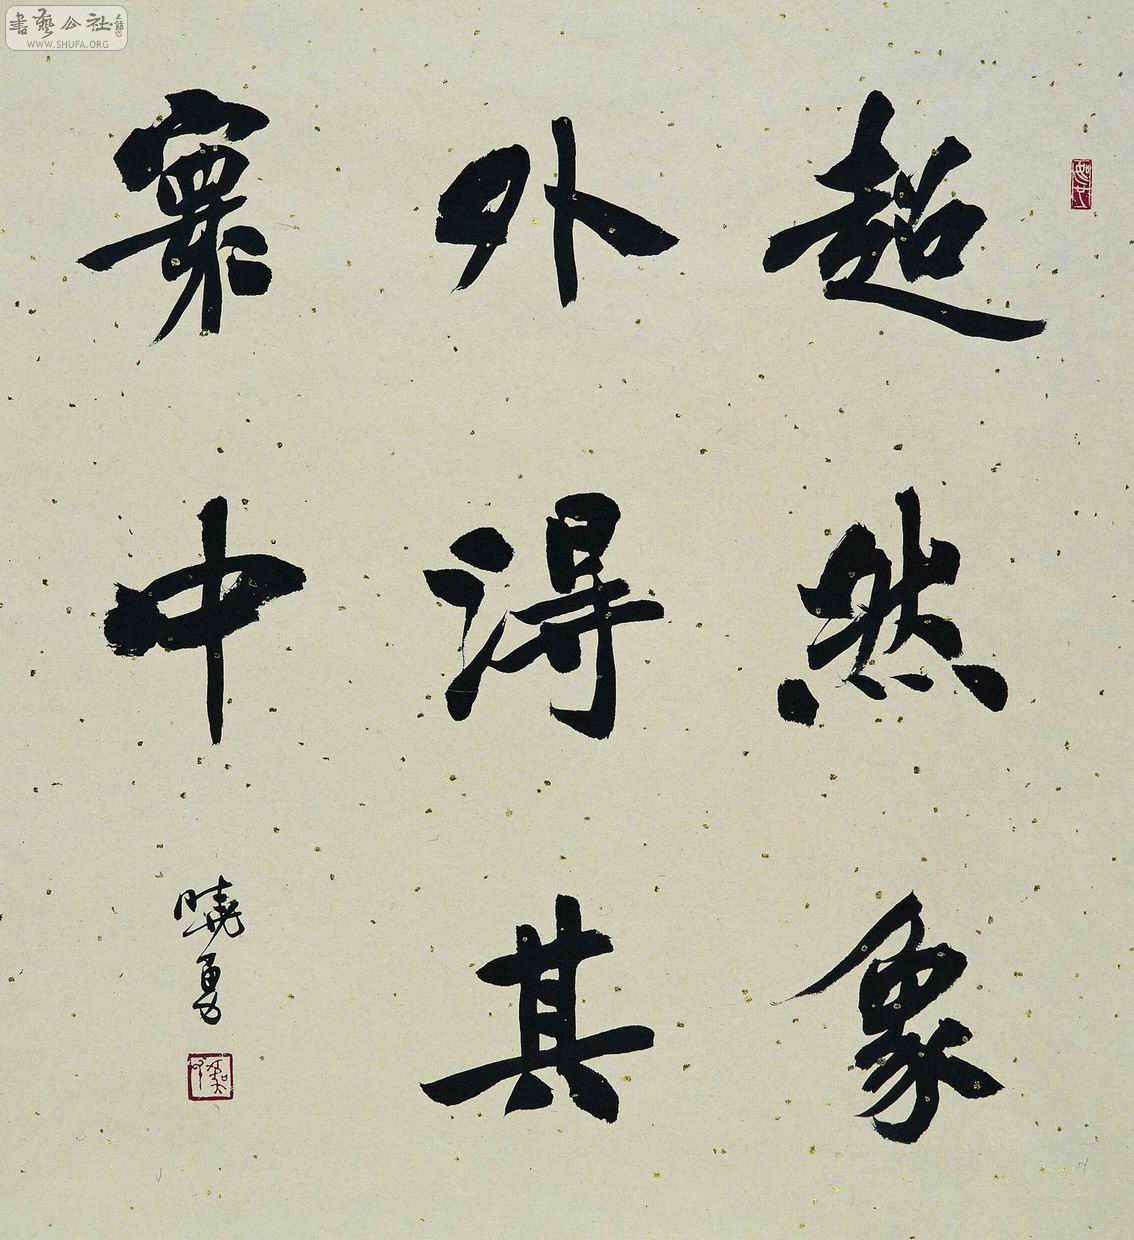 超然象
外得其
寰中
曉勇
書藝公社
WWW.SHUFA.ORG